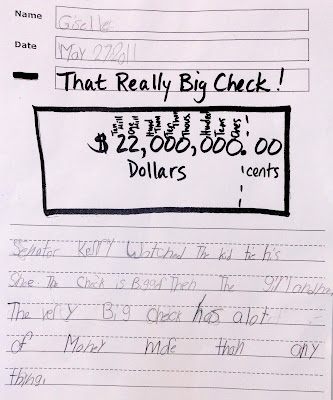 Name Giselle
Date May 27 2011
That Really Big Check!
Ten Mill One Mill Hund Thou Ten Thou Thous. Hundred Tens Ones
$22,000,000.00
Dollars cents
Senator Kerry Watched The kid tie his
Shoe The Check is Bigger Then The
The very Big check has alot
of Money more than any
thing.